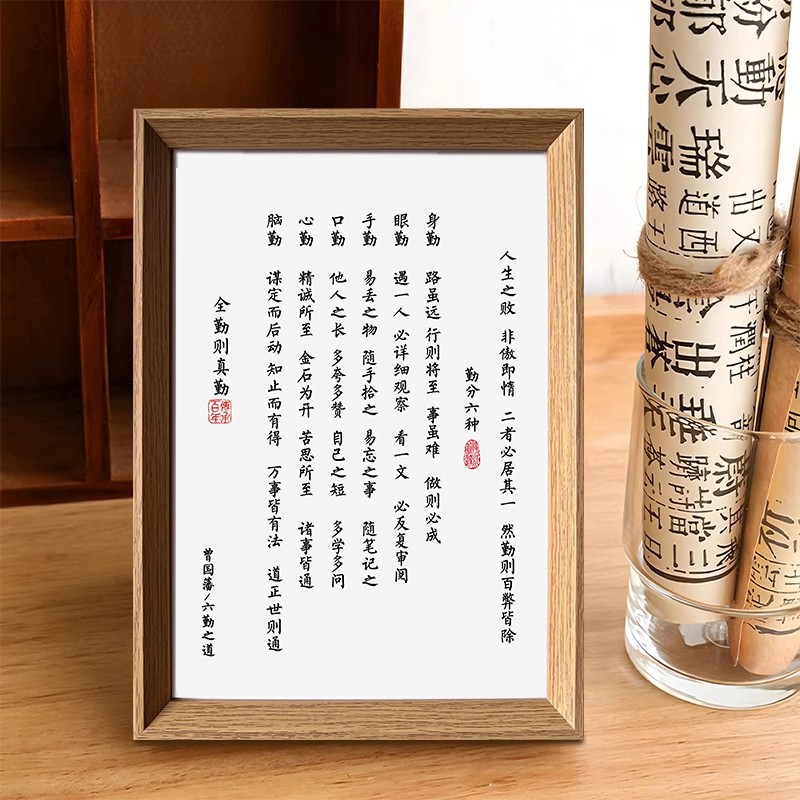 人生之败 非傲即惰 二者必居其一 然勤则百弊皆除
勤分六种
身勤 路虽远 行则将至 事虽难 做则必成
眼勤 遇一人 必详细观察 看一文 必反复审阅
手勤 易丢之物 随手拾之 易忘之事 随笔记之
口勤 他人之长 多夸多赞 自己之短 多学多问
心勤 精诚所至 金石为开 苦思所至 诸事皆通
脑勤 谋定而后动 知止而有得 万事皆有法 道正世则通
全勤则真勤
傳承百年
曾国藩/六勤之道
動天心
瑞雲